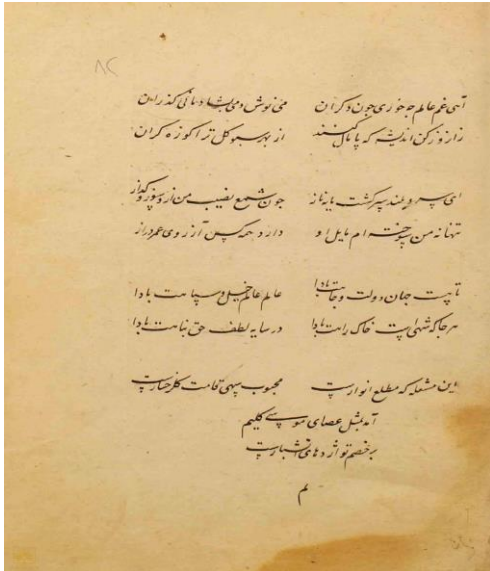 ۸۲
آسی غم عالم چه خوری چون دکران می نوش و دمی بشادمانی گذران
زان روز کن اندیشه که پامال کنند از بهر سبو کل ترا کوزه کران
ای سرو بلند سرکشت مایه ناز چون شمع نصیب من ز تو سوز و گداز
تنها نه من سوخته ام مایل او دارد همه کس آرزوی عمر دراز
تا هست جهان دولت و جاهت بادا عالم عالم خیل و سپاهت بادا
هر جا که شهی است خاک راهت بادا در سایه لطف حق پناهت بادا
این مشعله که مطلع انوارست محبوب سهی قامت گلرخسارست
آمد بمثل عصای موسی کلیم
بر خصم تو اژدهای آتشبارست